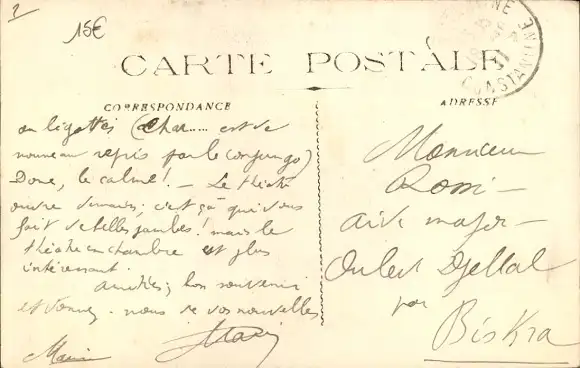 15€
CARTE POSTALE
CORRESPONDANCE
ADRESSE
est de
nouveau repris par le conjungo)
Donc, le calme! — Le théâtre
ouvre demain; c'est ça qui vous
fait de belles jambes! mais le
théâtre en chambre est plus
intéressant.
Amitiés; bon souvenir
et donnez-nous de vos nouvelles
Monsieur
Rossi —
aide major —
Ouled Djellal
par
Biskra
CONSTANTINE